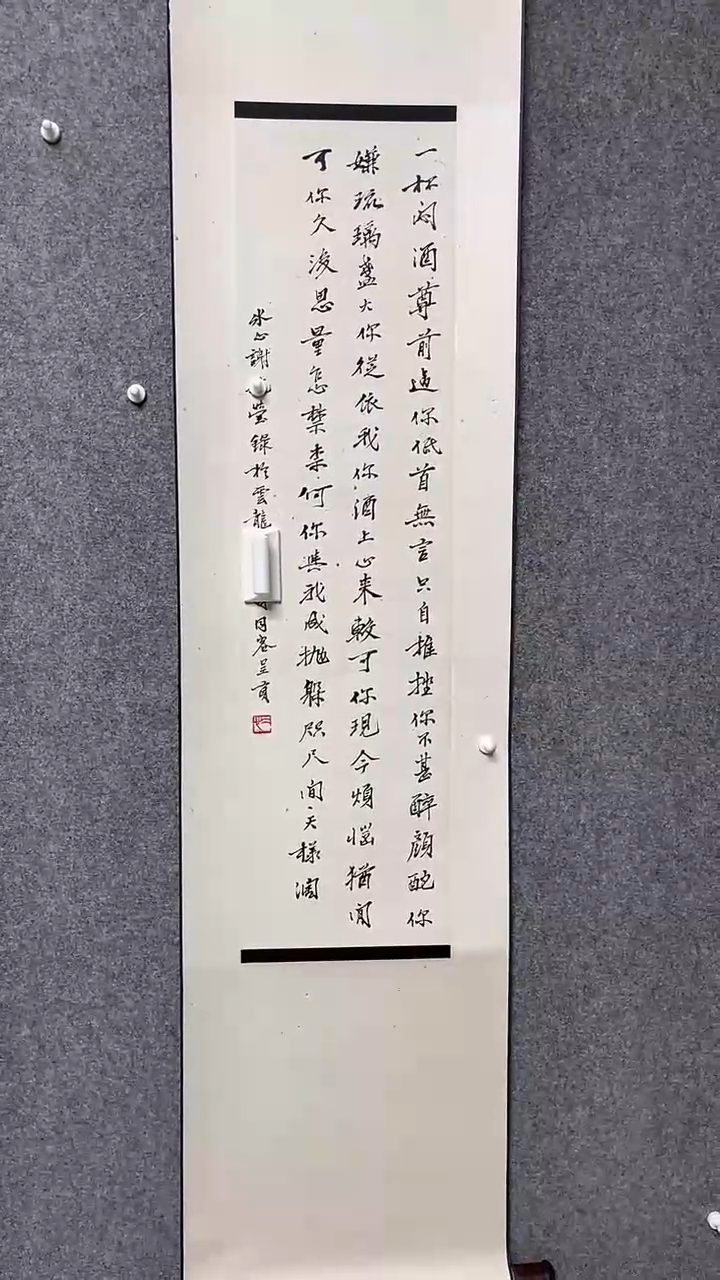 一杯悶酒尊前過你低首無言只自摧挫你不甚醉顏酡你
嫌琉璃盞大你從依我你酒上心來較可你現今煩惱猶閒
可你久後思量怎禁柰何你與我成拋躲咫尺間天樣濶
冰心謝瑩錄於雲龍同客呈貢